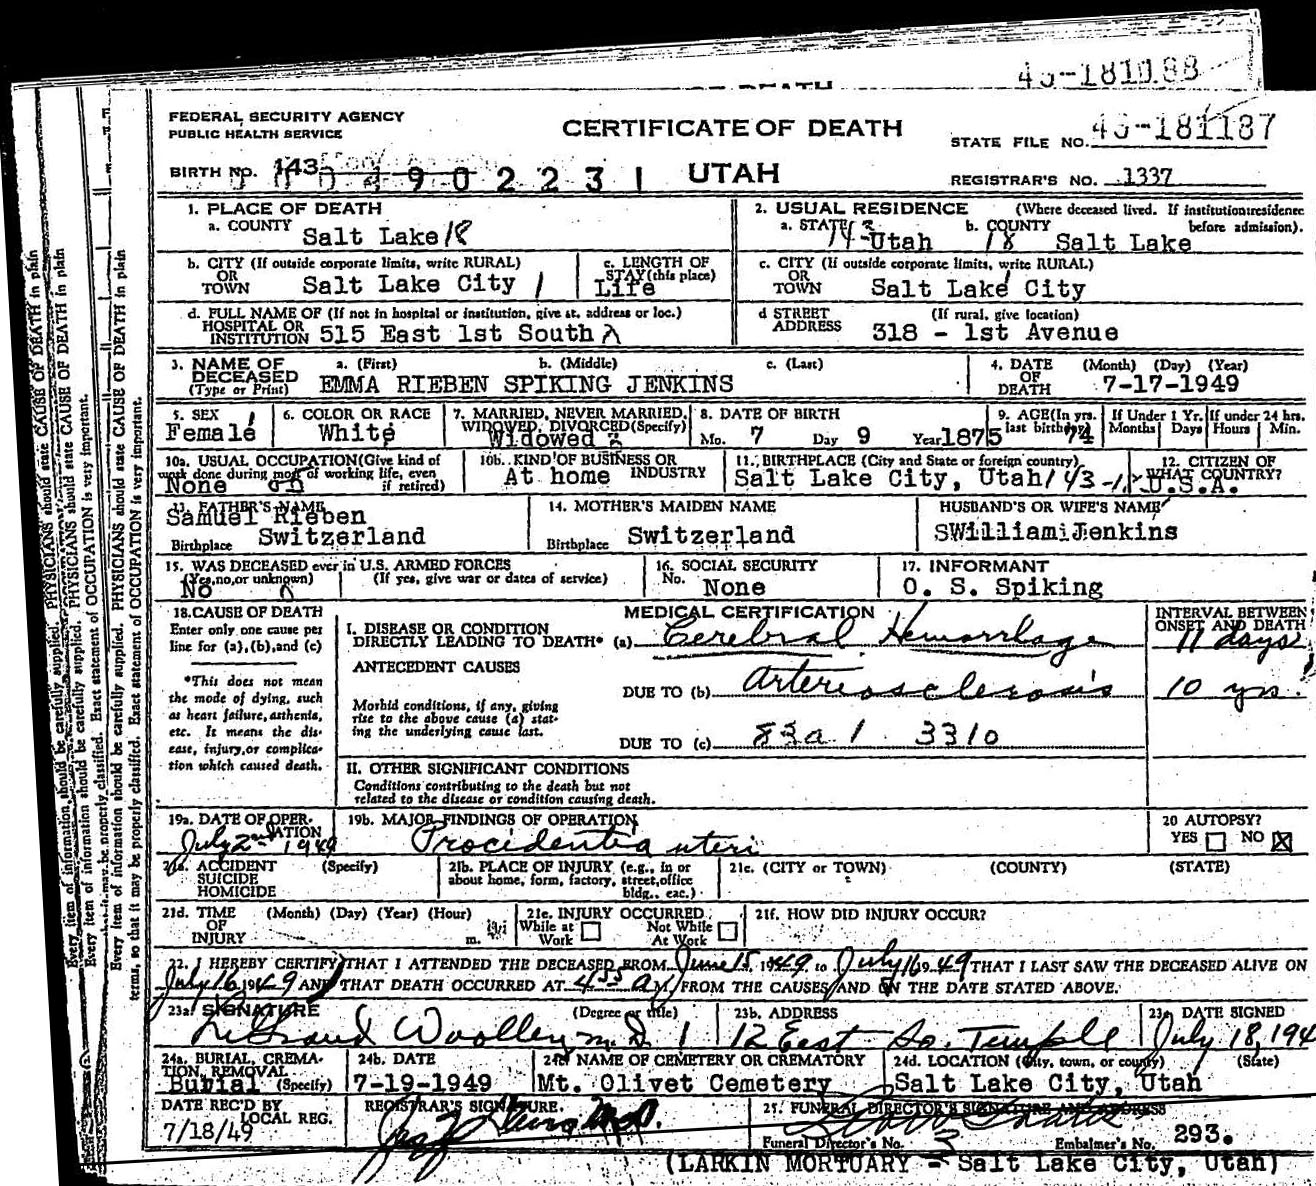 45-181088
OF DEATH
FEDERAL SECURITY AGENCY
PUBLIC HEALTH SERVICE
CERTIFICATE OF DEATH
STATE FILE NO. 45-181187
BIRTH NO. 143
0 0 0 4 9 0 2 2 3 1
UTAH
REGISTRAR'S NO. 1337
1. PLACE OF DEATH
a. COUNTY
Salt Lake 18
2. USUAL RESIDENCE (Where deceased lived. If institution: residence before admission).
a. STATE b. COUNTY
143 Utah 18 Salt Lake
b. CITY (If outside corporate limits, write RURAL)
OR
TOWN Salt Lake City 1
c. LENGTH OF
STAY (this place)
Life
c. CITY (If outside corporate limits, write RURAL)
OR
TOWN Salt Lake City
d. FULL NAME OF (If not in hospital or institution, give st. address or loc.)
HOSPITAL OR
INSTITUTION 515 East 1st South
d STREET (If rural, give location)
ADDRESS 318 - 1st Avenue
3. NAME OF a. (First) b. (Middle) c. (Last)
DECEASED
(Type or Print) EMMA RIEBEN SPIKING JENKINS
4. DATE (Month) (Day) (Year)
OF
DEATH 7-17-1949
5. SEX 1
Female
6. COLOR OR RACE
White
7. MARRIED, NEVER MARRIED,
WIDOWED, DIVORCED (Specify)
Widowed
8. DATE OF BIRTH
Mo. 7 Day 9 Year 1875
9. AGE (In yrs.
last birthday) 74
If Under 1 Yr.
Months Days
If under 24 hrs.
Hours Min.
10a. USUAL OCCUPATION (Give kind of
work done during most of working life, even
if retired)
None
10b. KIND OF BUSINESS OR
INDUSTRY
At home
11. BIRTHPLACE (City and State or foreign country)
Salt Lake City, Utah 143-18
12. CITIZEN OF
WHAT COUNTRY?
U.S.A.
13. FATHER'S NAME
Samuel Rieben
Birthplace Switzerland
14. MOTHER'S MAIDEN NAME
Birthplace Switzerland
HUSBAND'S OR WIFE'S NAME
SWilliamiJenkins
15. WAS DECEASED ever in U.S. ARMED FORCES
(Yes, no, or unknown) (If yes, give war or dates of service)
No
16. SOCIAL SECURITY
No. None
17. INFORMANT
O. S. Spiking
18. CAUSE OF DEATH
Enter only one cause per
line for (a), (b), and (c)
*This does not mean
the mode of dying, such
as heart failure, asthenia,
etc. It means the dis-
ease, injury, or complica-
tion which caused death.
MEDICAL CERTIFICATION
INTERVAL BETWEEN
ONSET AND DEATH
I. DISEASE OR CONDITION
DIRECTLY LEADING TO DEATH* (a) Cerebral Hemorrhage 11 days
ANTECEDENT CAUSES
DUE TO (b) Arteriosclerosis 10 yrs.
Morbid conditions, if any, giving
rise to the above cause (a) stat-
ing the underlying cause last.
DUE TO (c) 83a 1 3310
II. OTHER SIGNIFICANT CONDITIONS
Conditions contributing to the death but not
related to the disease or condition causing death.
19a. DATE OF OPER-
ATION
July 2nd 1949
19b. MAJOR FINDINGS OF OPERATION
Procidentia uteri
20 AUTOPSY?
YES NO X
21a. ACCIDENT (Specify)
SUICIDE
HOMICIDE
21b. PLACE OF INJURY (e.g., in or
about home, form, factory, street, office
bldg., eac.)
21c. (CITY or TOWN) (COUNTY) (STATE)
21d. TIME (Month) (Day) (Year) (Hour)
OF
INJURY m.
21e. INJURY OCCURRED
While at Work Not While At Work
21f. HOW DID INJURY OCCUR?
22. I HEREBY CERTIFY THAT I ATTENDED THE DECEASED FROM June 15, 1949 to July 16, 1949 THAT I LAST SAW THE DECEASED ALIVE ON
July 16, 1949 AND THAT DEATH OCCURRED AT 4:55 a M, FROM THE CAUSES AND ON THE DATE STATED ABOVE.
23a. SIGNATURE (Degree or title)
LeGrand Woolley M.D. 1
23b. ADDRESS
12 East So. Temple
23c DATE SIGNED
July 18, 194
24a. BURIAL, CREMA-
TION, REMOVAL
Burial (Specify)
24b. DATE
7-19-1949
24c. NAME OF CEMETERY OR CREMATORY
Mt. Olivet Cemetery
24d. LOCATION (City, town, or county) (State)
Salt Lake City, Utah
DATE REC'D BY
LOCAL REG.
7/18/49
REGISTRAR'S SIGNATURE.
25. FUNERAL DIRECTOR'S SIGNATURE AND ADDRESS
Funeral Director's No. 3 Embalmer's No. 293.
(LARKIN MORTUARY - Salt Lake City, Utah)
Every item of information should be carefully supplied. PHYSICIANS should state CAUSE OF DEATH in plain
terms, so that it may be properly classified. Exact statement of OCCUPATION is very important.